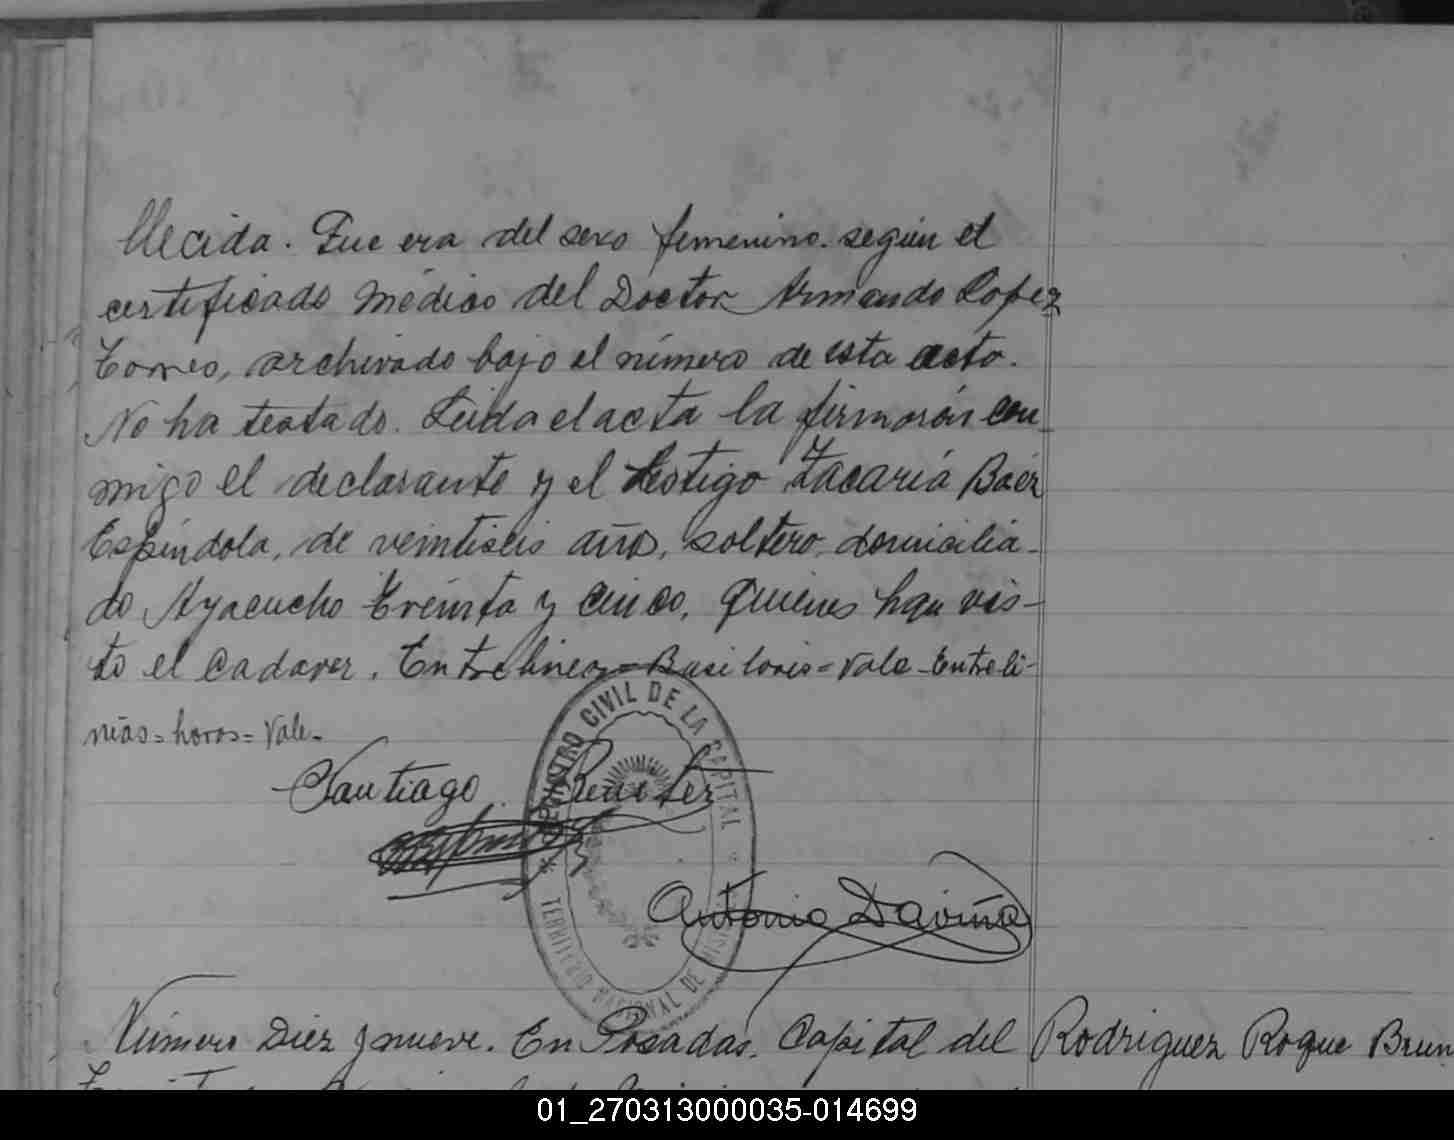 llecida. Que era del sexo femenino. según el
certificado médico del Doctor Armando Lopez
Torres, archivado bajo el número de esta acta.
No ha testado. Leida el acta la firmarón con
migo el declarante y el testigo Zacaría Báez
Espíndola, de veintiseis años, soltero, domicilia-
do Ayacucho treinta y cinco, quienes han vis-
to el cadaver. Entrelineas= =Vale-Entreli-
neas=horas=Vale-
REGISTRO CIVIL DE LA CAPITAL
Santiago Benitez
Antonio Daviña
TERRITORIO NACIONAL DE MISIONES
Número Diez y nueve. En Posadas, Capital del
Rodriguez Roque Brun
01_270313000035-014699